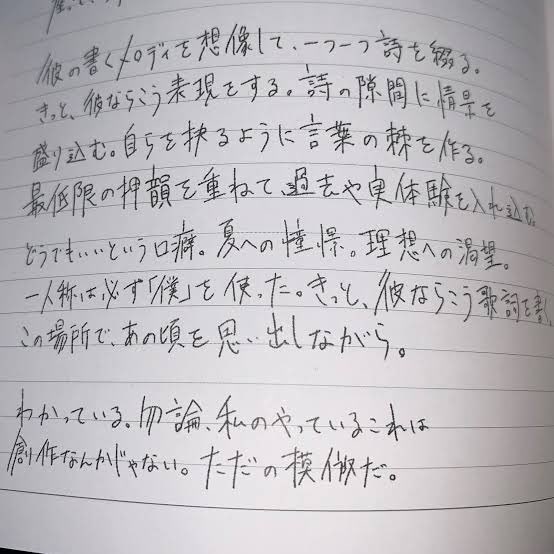 彼の書くメロディを想像して、一つ一つ詩を綴る。
きっと、彼ならこう表現をする。詩の隙間に情景を
盛り込む。自らを抉るように言葉の棘を作る。
最低限の押韻を重ねて、過去や実体験を入れ込む。
どうでもいいという口癖。夏への憧憬。理想への渇望。
一人称は必ず「僕」を使った。きっと、彼ならこう歌詞を書く、
この場所で、あの頃を思い出しながら。
わかっている。勿論、私のやっているこれは
創作なんかじゃない。ただの模倣だ。